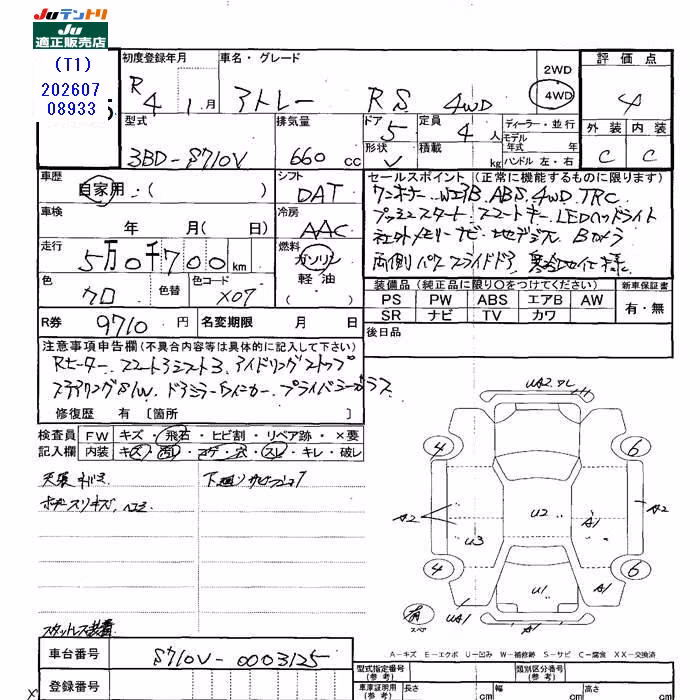 Juテントリ
Ju
適正販売店
(T1)
202607
08933
初度登録年月
R4 1月
車名・グレード
アトレー RS 4WD
2WD
4WD
評価点
4
外装 内装
C C
型式
3BD-S710V
排気量
660 cc
ドア 5
形状 V
定員 4 人
積載 kg
ディーラー・並行
モデル年式 年
ハンドル 左・右
車歴
自家用・( )
シフト
DAT
車検
年 月( 日)
冷房
AAC
走行
5万0千700km
燃料
ガソリン
軽油
( )
色
クロ
色替
色コード
X07
R券 9710円
名変期限 月 日
セールスポイント (正常に機能するものに限ります)
ワンオーナー、WエアB、ABS、4WD、TRC
プッシュスタート スマートキー LEDヘッドライト
社外メモリーナビ 地デジTV Bカメラ
両側パワースライドドア、寒冷地仕様
装備品(純正品に限り○をつけてください)
新車保証書
PS PW ABS エアB AW
SR ナビ TV カワ
有・無
後日品
注意事項申告欄(不具合内容等は具体的に記入して下さい)
Rヒーター、スマートアシスト3、アイドリングストップ
ステアリングS/W、ドアミラーウィンカー、プライバシーガラス
修復歴 有 〔箇所 〕
検査員
記入欄
FW キズ・飛石・ヒビ割・リペア跡・×要
内装 キズ・汚レ・コゲ・穴・スレ・キレ・破レ
天張キバミ
下廻りサビ
スリキズ、ヘコミ
スタットレス装着
UA2 ワレ
4 6
A2 U3 U2 A1 A2
4 6
U1 A1
UA1 A1
有
スペア
A-キズ E-エクボ U-凹み W-補修跡 S-サビ C-腐食 XX-交換済
車台番号 S710V-0003125
登録番号
型式指定番号(参考)
類別区分番号(参考)
車庫証明用(参考) 長さ cm 幅 cm 高さ cm